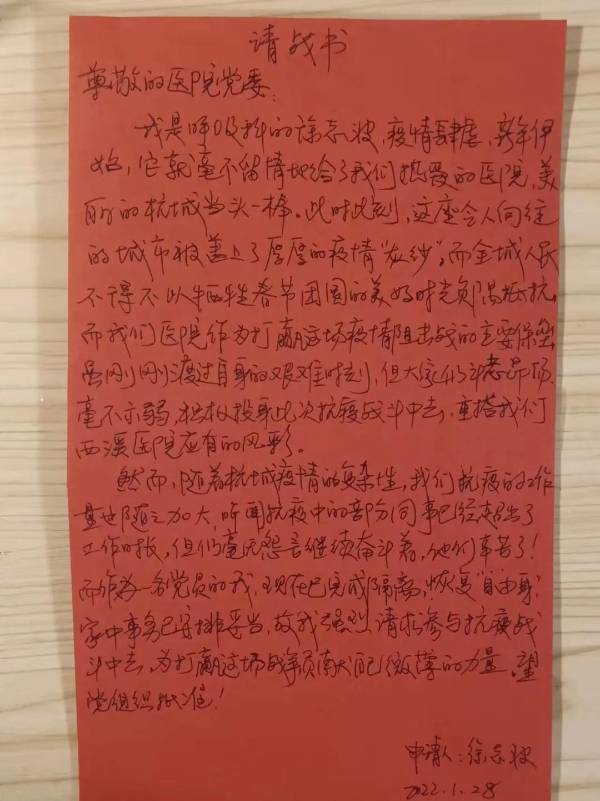 请战书
尊敬的医院党委:
我是呼吸科的徐志波,疫情肆虐,新年伊
始,它就毫不留情地给了我们热爱的医院,美
丽的杭城当头一棒。此时此刻,这座令人向往
的城市被盖上了厚厚的疫情“灰纱”,而全城人民
不得不以牺牲春节团圆的美好时光
而我们医院作为打赢这场疫情阻击战的主要堡垒
虽刚刚渡过自身的艰难时刻,但大家仍斗志昂扬,
毫不示弱,积极投身此次抗疫战斗中去,重搭我们
西溪医院应有的风彩。
然而,随着杭城疫情的复杂性,我们抗疫的工作
量也随之加大,听闻抗疫中的部分同事已经超出了
工作时长,但仍毫无怨言继续奋斗着,他们辛苦了!
而作为一名党员的我,现在已完成隔离,恢复“自由身”,
家中事务已安排妥当,故我强烈请求参与抗疫战
斗中去,为打赢这场战争贡献自己微薄的力量。望
党组织批准!
申请人:徐志波
2022.1.28